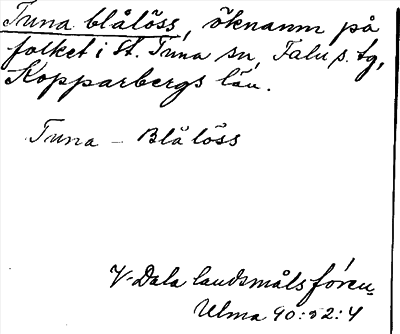 Tuna blålöss, öknamn på
folket i St. Tuna sn, Falu s. tg,
Kopparbergs län.
Tuna - Blålöss
V-Dala landsmålsfören.
Ulma 90:52:4